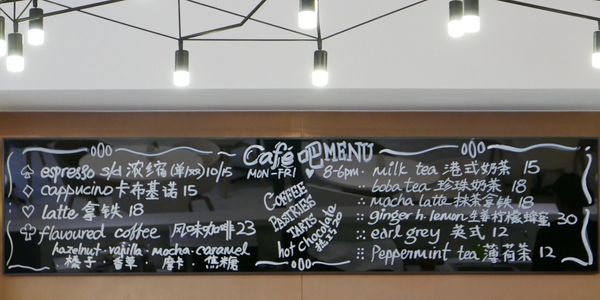 Café 吧 MENU
MON-FRI ♥ 8-6pm
espresso s/d 浓缩(单/双) 10/15
cappucino 卡布基诺 15
latte 拿铁 18
flavoured coffee 风味咖啡 23
hazelnut · vanilla · mocha · caramel
榛子 · 香草 · 摩卡 · 焦糖
COFFEE
PASTRIES
TARTS
hot chocolate
milk tea 港式奶茶 15
boba tea 珍珠奶茶 18
mocha latte 抹茶拿铁 18
ginger h. lemon 生姜柠檬蜂蜜 30
earl grey 英式 12
Peppermint tea 薄荷茶 12